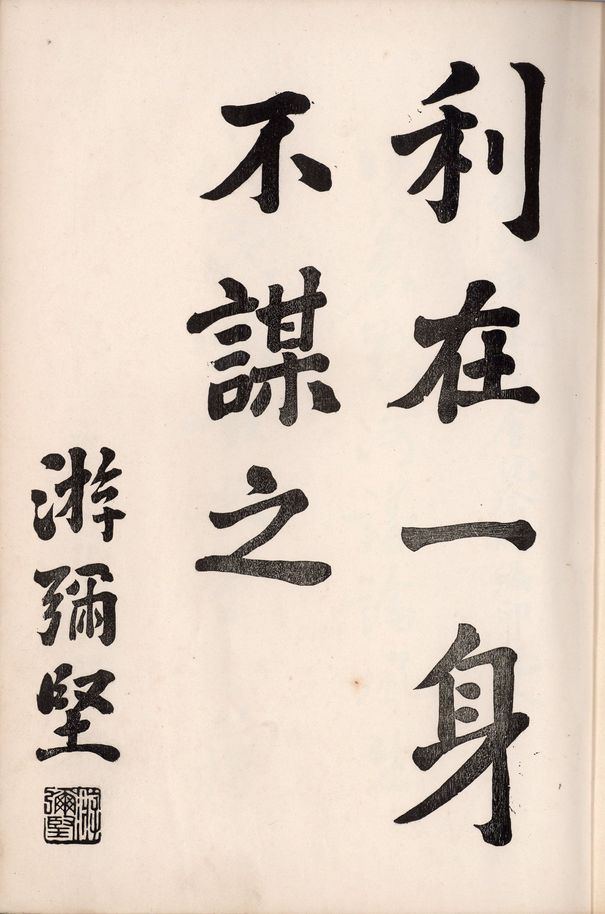 利在一身
不謀之
游彌堅
游彌堅